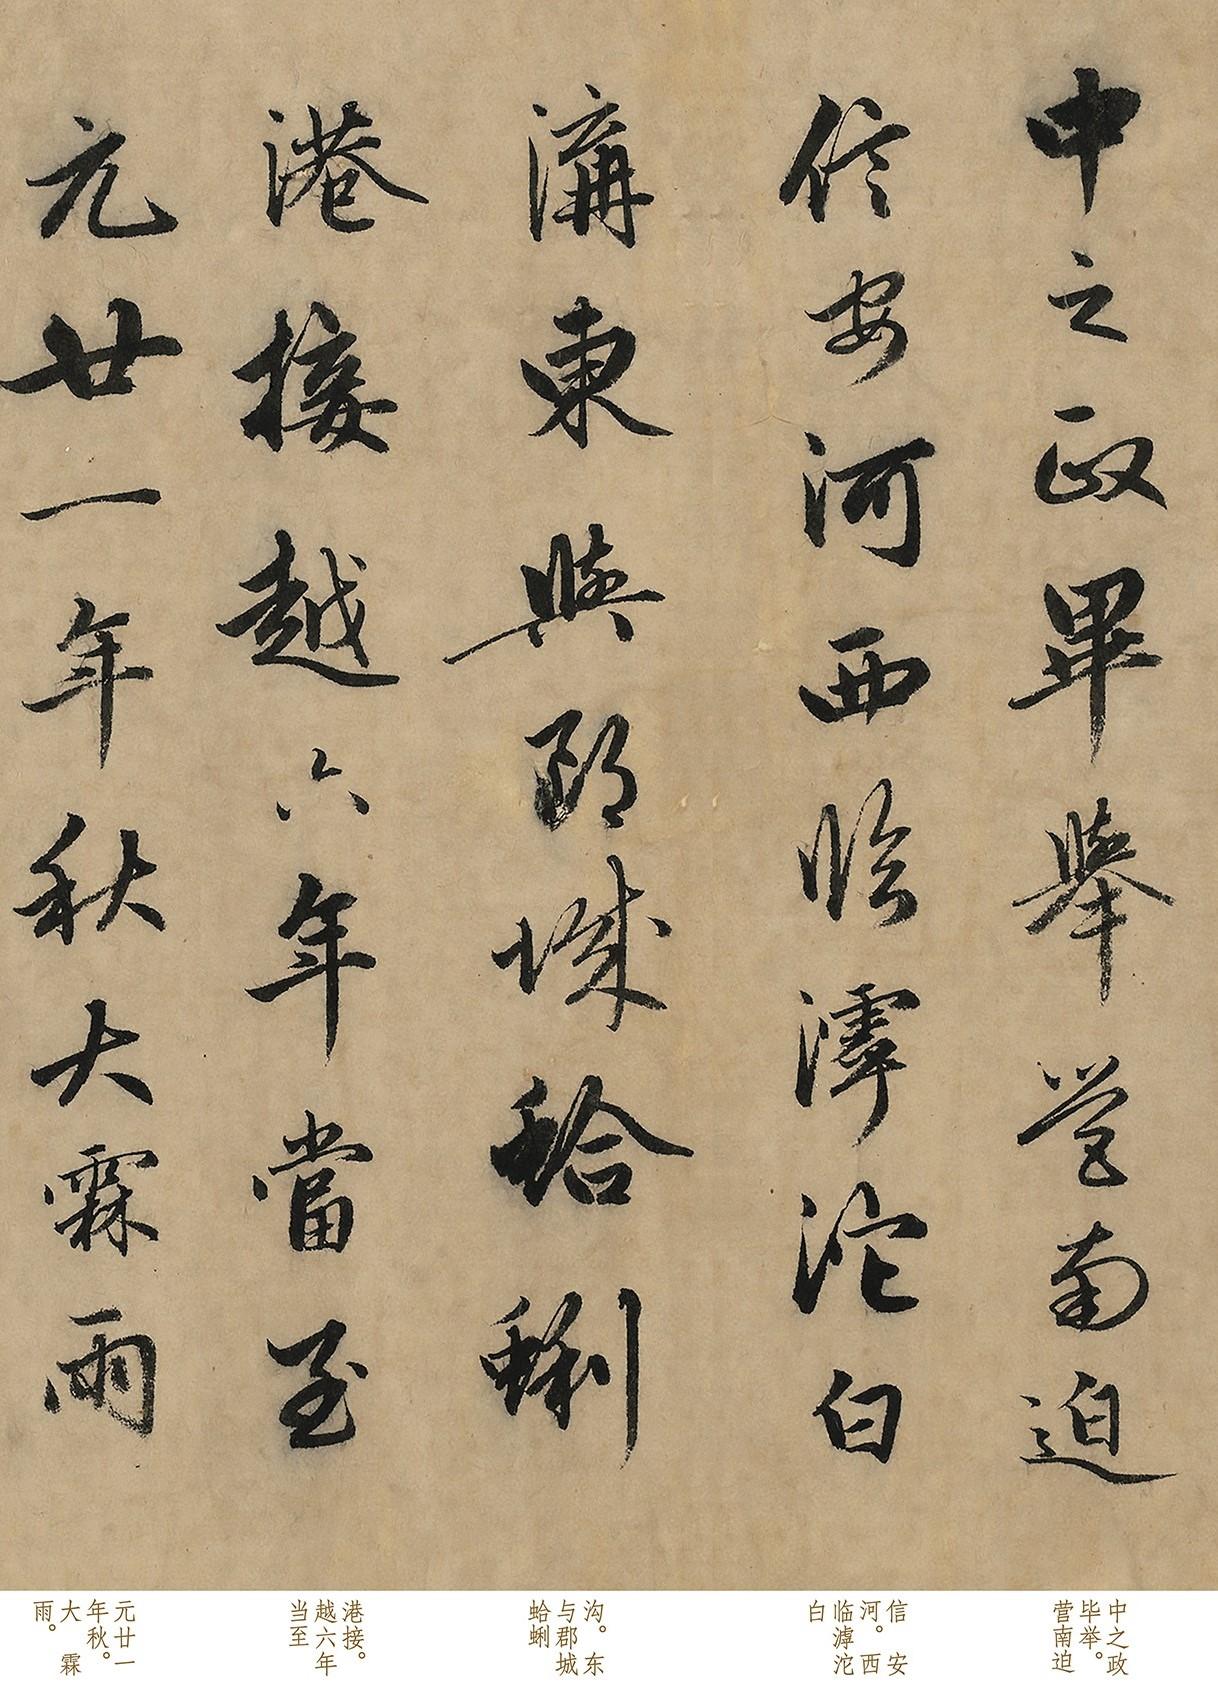 中之政畢舉營南迫
信安河西臨滹沱白
溝東與郡城蛤蜊
港接越六年當至
元廿一年秋大霖雨
中之政
毕举。
营南迫
信安
河。西
临滹沱
白
沟。东
与郡城
蛤蜊
港接。
越六年
当至
元廿一
年秋。
大霖
雨。